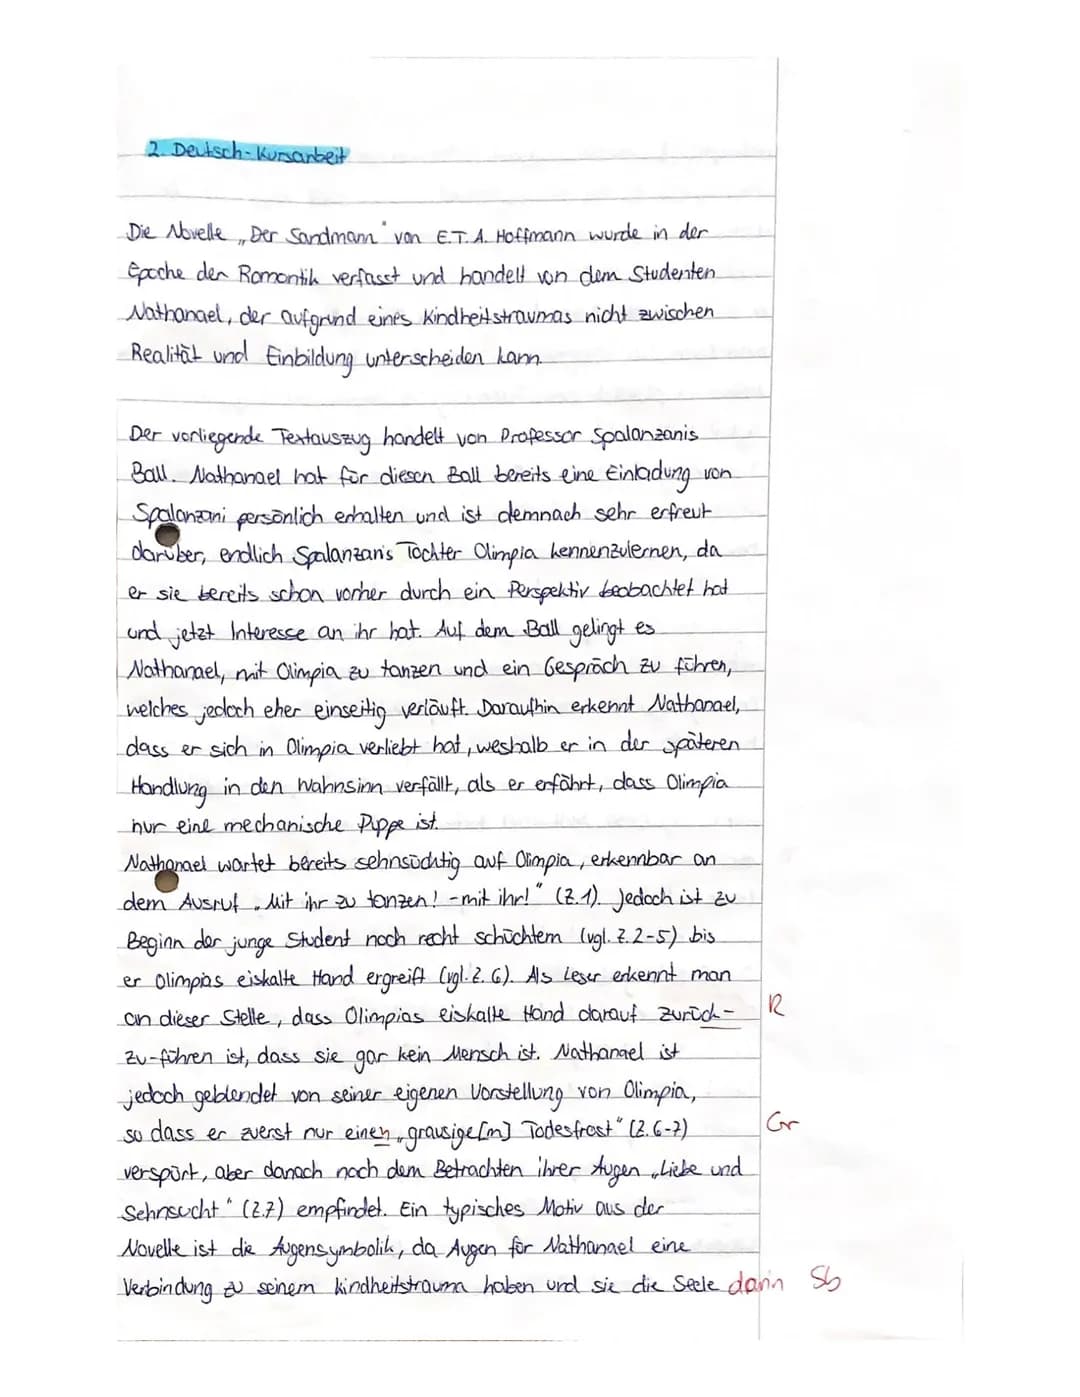 2. Deutsch-Kursarbeit
Die Novelle „Der Sandmann" von E.T.A. Hoffmann wurde in der
Epoche der Romantik verfasst und handelt von dem Studenten
Nathanael, der aufgrund eines Kindheitstraumas nicht zwischen
Realität und Einbildung unterscheiden kann.
Der vorliegende Textauszug handelt von Professor Spalanzanis
Ball. Nathanael hat für diesen Ball bereits eine Einladung von
Spalanzani persönlich erhalten und ist demnach sehr erfreut
darüber, endlich Spalanzanis Tochter Olimpia kennenzulernen, da
er sie bereits schon vorher durch ein Perspektiv beobachtet hat
und jetzt Interesse an ihr hat. Auf dem Ball gelingt es
Nathanael, mit Olimpia zu tanzen und ein Gespräch zu führen,
welches jedoch eher einseitig verläuft. Daraufhin erkennt Nathanael,
dass er sich in Olimpia verliebt hat, weshalb er in der späteren
Handlung in den Wahnsinn verfällt, als er erfährt, dass Olimpia
nur eine mechanische Puppe ist.
Nathanael wartet bereits sehnsüchtig auf Olimpia, erkennbar an
dem Ausruf „Mit ihr zu tanzen! - mit ihr!" (Z.1). Jedoch ist zu
Beginn der junge Student noch recht schüchtern (vgl. Z.2-5) bis
er Olimpias eiskalte Hand ergreift (vgl. Z.6). Als Leser erkennt man
an dieser Stelle, dass Olimpias eiskalte Hand darauf zurück- R
zu-führen ist, dass sie gar kein Mensch ist. Nathanael ist
jedoch geblendet von seiner eigenen Vorstellung von Olimpia,
so dass er zuerst nur einen „grausige[m] Todesfrost" (Z.6-7) Gr
verspürt, aber danach nach dem Betrachten ihrer Augen „Liebe und
Sehnsucht" (Z.7) empfindet. Ein typisches Motiv aus der
Novelle ist die Augensymbolik, da Augen für Nathanael eine
Verbindung zu seinem Kindheitstrauma haben und sie die Seele darin Sb